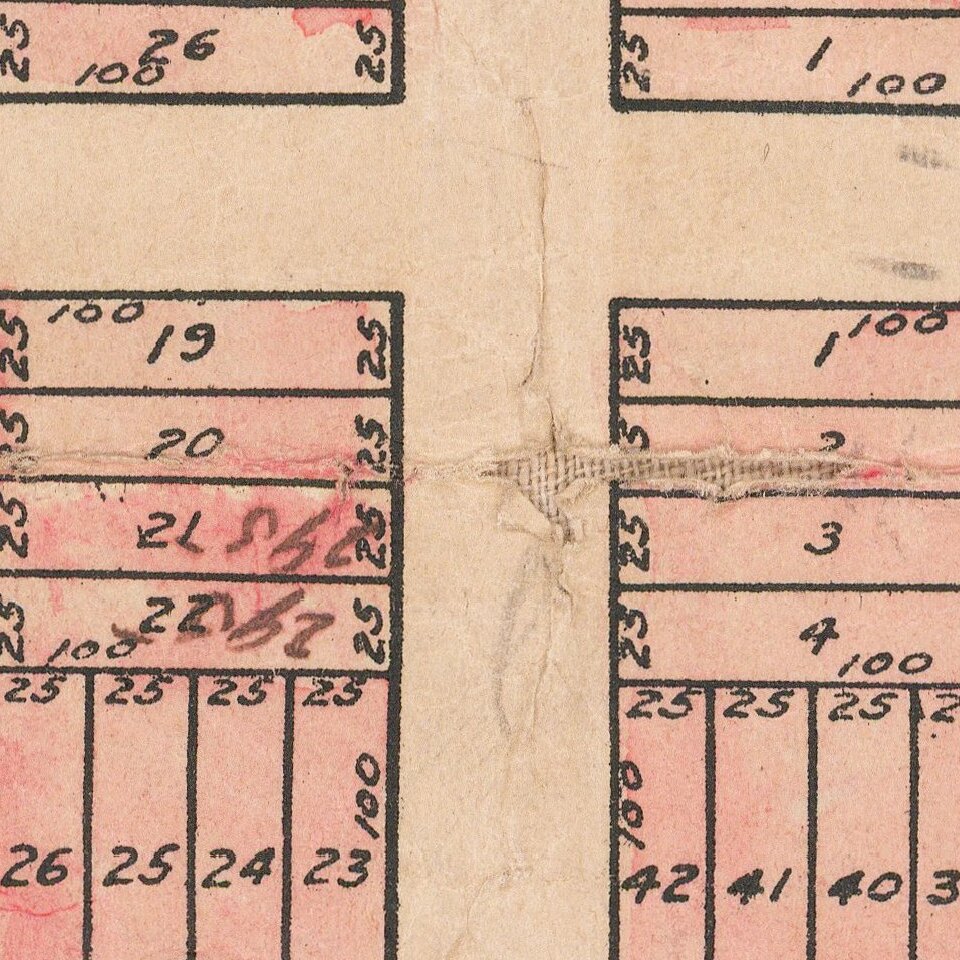 25 26 25
100
25 1
100
100
25 19 25
25 20 25
25 21 25
25 22 25
100
25 25 25 25
100
26 25 24 23
100
25 1
2
25 3
25 4
100
25 25 25
100
42 41 40